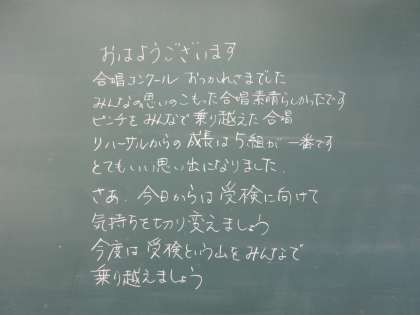 おはようございます
合唱コンクール おつかれさまでした
みんなの思いのこもった合唱素晴らしかったです
ピンチをみんなで乗り越えた合唱
リハーサルからの成長は5組が一番です
とてもいい思い出になりました.
さあ、今日からは受検に向けて
気持ちを切り変えましょう
今度は受検という山をみんなで
乗り越えましょう